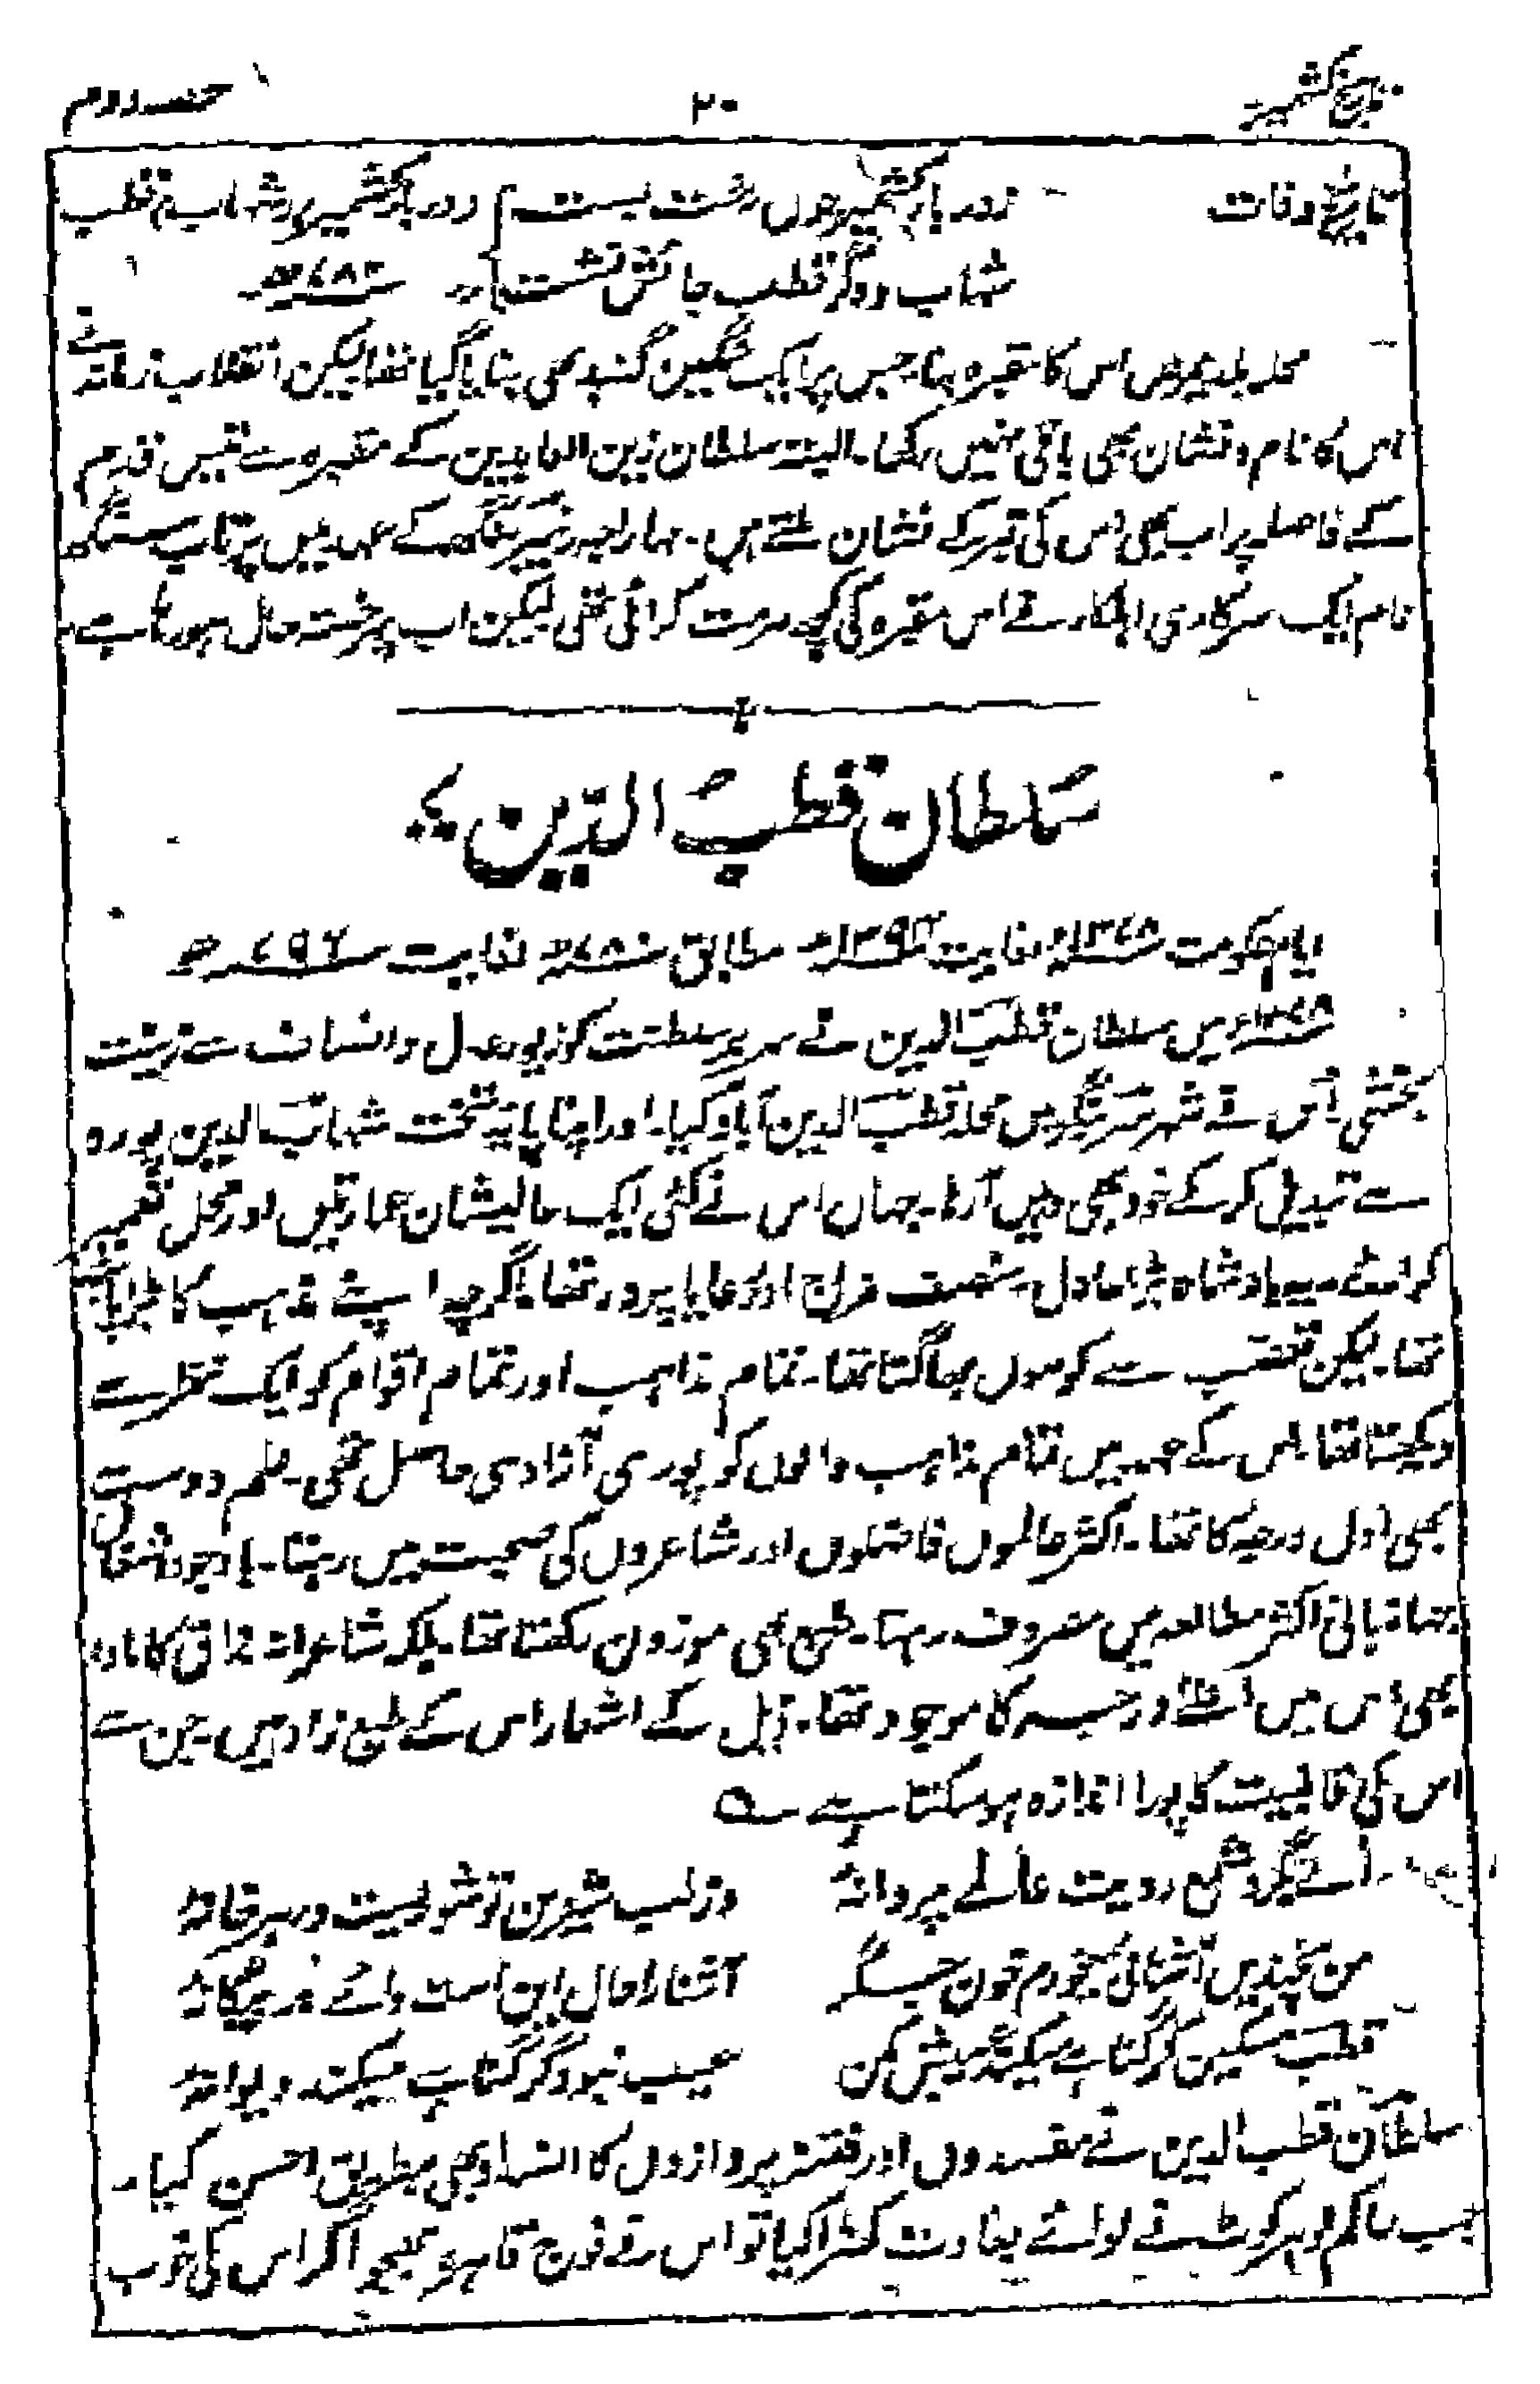 تاریخ کشمیر ۲۰ حصہ دوم
تاریخ وفات زدربار کشمیر چوں رخت بست دربار کشمیر شہاب قطب
شہاب و دگر قطب جائش نشست ۷۸۰ھ
محلہ بلدیمر میں اس کا مقبرہ بنا۔ جس پر ایک سنگین گنبد بھی بنایا گیا تھا لیکن انقلاب زمانہ نے
اس کا نام و نشان بھی باقی نہیں رکھا۔ البتہ سلطان زین العابدین کے مقبرہ سے تیس قدم
کے فاصلہ پر اب بھی اس کی قبر کے نشان ملتے ہیں۔ مہاراجہ رنبیر سنگھ کے عہد میں پرتاب سنگھ
نام ایک سرکاری اہلکار نے اس مقبرہ کی کچھ مرمت کرائی تھی لیکن اب پھر خستہ حال ہو رہا ہے
سلطان قطب الدین
ایام حکومت ۱۳۷۸ء لغایت ۱۳۹۴ء مطابق ۷۸۰ھ لغایت ۷۹۶ھ
۱۳۷۸ء میں سلطان قطب الدین نے سریر سلطنت کو زیور عدل و انصاف سے زینت
بخشی اس نے شہر سرینگر میں محلہ قطب الدین آباد کیا۔ اور اپنا پایہ تخت شہاب الدین پورہ
سے تبدیل کر کے خود بھی وہیں آ رہا۔ جہاں اس نے کئی ایک عالیشان عمارتیں اور محل تعمیر
کرائے۔ یہ بادشاہ بڑا عادل۔ منصف مزاج اور رعایا پرور تھا۔ اگرچہ اپنے مذہب کا بڑا پابند
تھا۔ لیکن تعصب سے کوسوں بھاگتا تھا۔ تمام مذاہب اور تمام اقوام کو ایک نظر سے
دیکھتا تھا۔ اس کے عہد میں تمام مذاہب والوں کو پوری آزادی حاصل تھی۔ علم دوست
بھی اول درجہ کا تھا۔ اکثر عالموں فاضلوں اور شاعروں کی صحبت میں رہتا۔ باوجود مشغال
جہانبانی اکثر مطالعہ میں مصروف رہتا۔ طبع بھی موزون رکھتا تھا۔ بلکہ شاعرانہ مذاق کا مادہ
بھی اس میں اعلےٰ درجہ کا موجود تھا۔ ذیل کے اشعار اس کے طبع زاد ہیں۔ جن سے
اس کی قابلیت کا پورا اندازہ ہو سکتا ہے ؎
اے بگرد شمع رویت عالمے پروانۂ وز لب شیرین تو شوریست در ہر خانۂ
من بچندیں آشنائی میخورم خون جگر آشنا را حال این است وائے بر بیگانۂ
قطب مسکین گر گناہے میکند عیبش مکن عیب نبود گر گناہے میکند دیوانۂ
سلطان قطب الدین نے مفسدوں اور فتنہ پردازوں کا انسداد بھی بطریق احسن کیا۔
جب حاکم لوہر کوٹ نے لوائے بغاوت کھڑا کیا تو اس نے فوج قاہرہ بھیجوا کر اس کی خوب